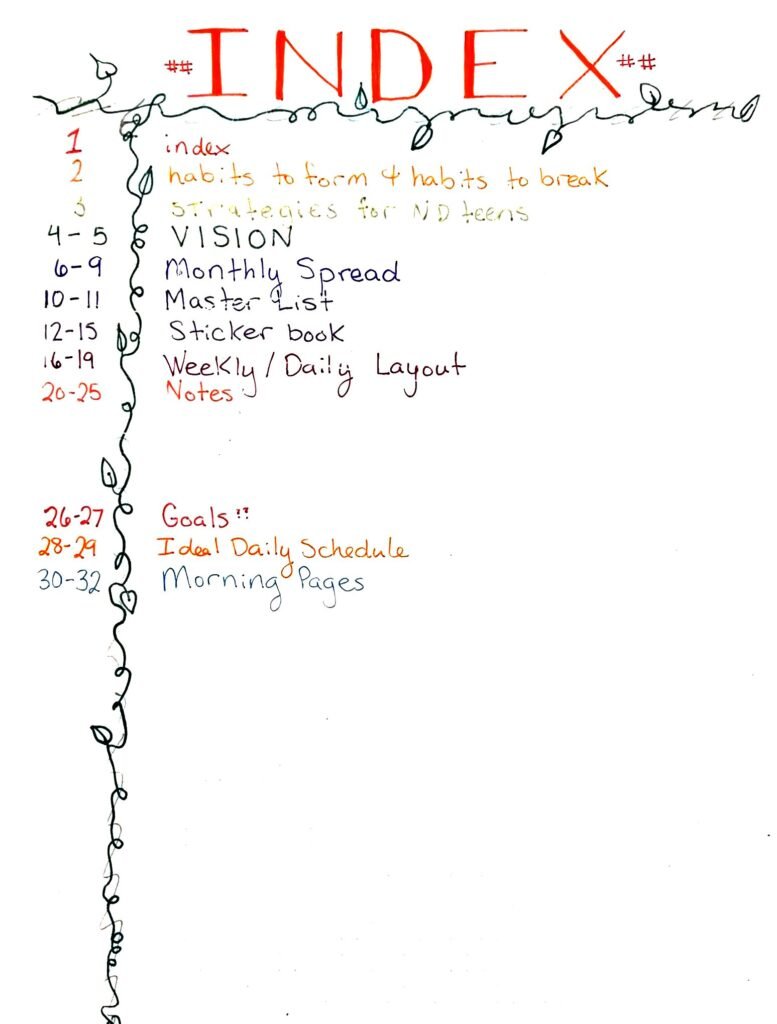 ## INDEX ##
1 index
2 habits to form & habits to break
3 strategies for ND teens
4-5 VISION
6-9 Monthly Spread
10-11 Master List
12-15 Sticker book
16-19 Weekly / Daily Layout
20-25 Notes
26-27 Goals!?
28-29 Ideal Daily Schedule
30-32 Morning Pages